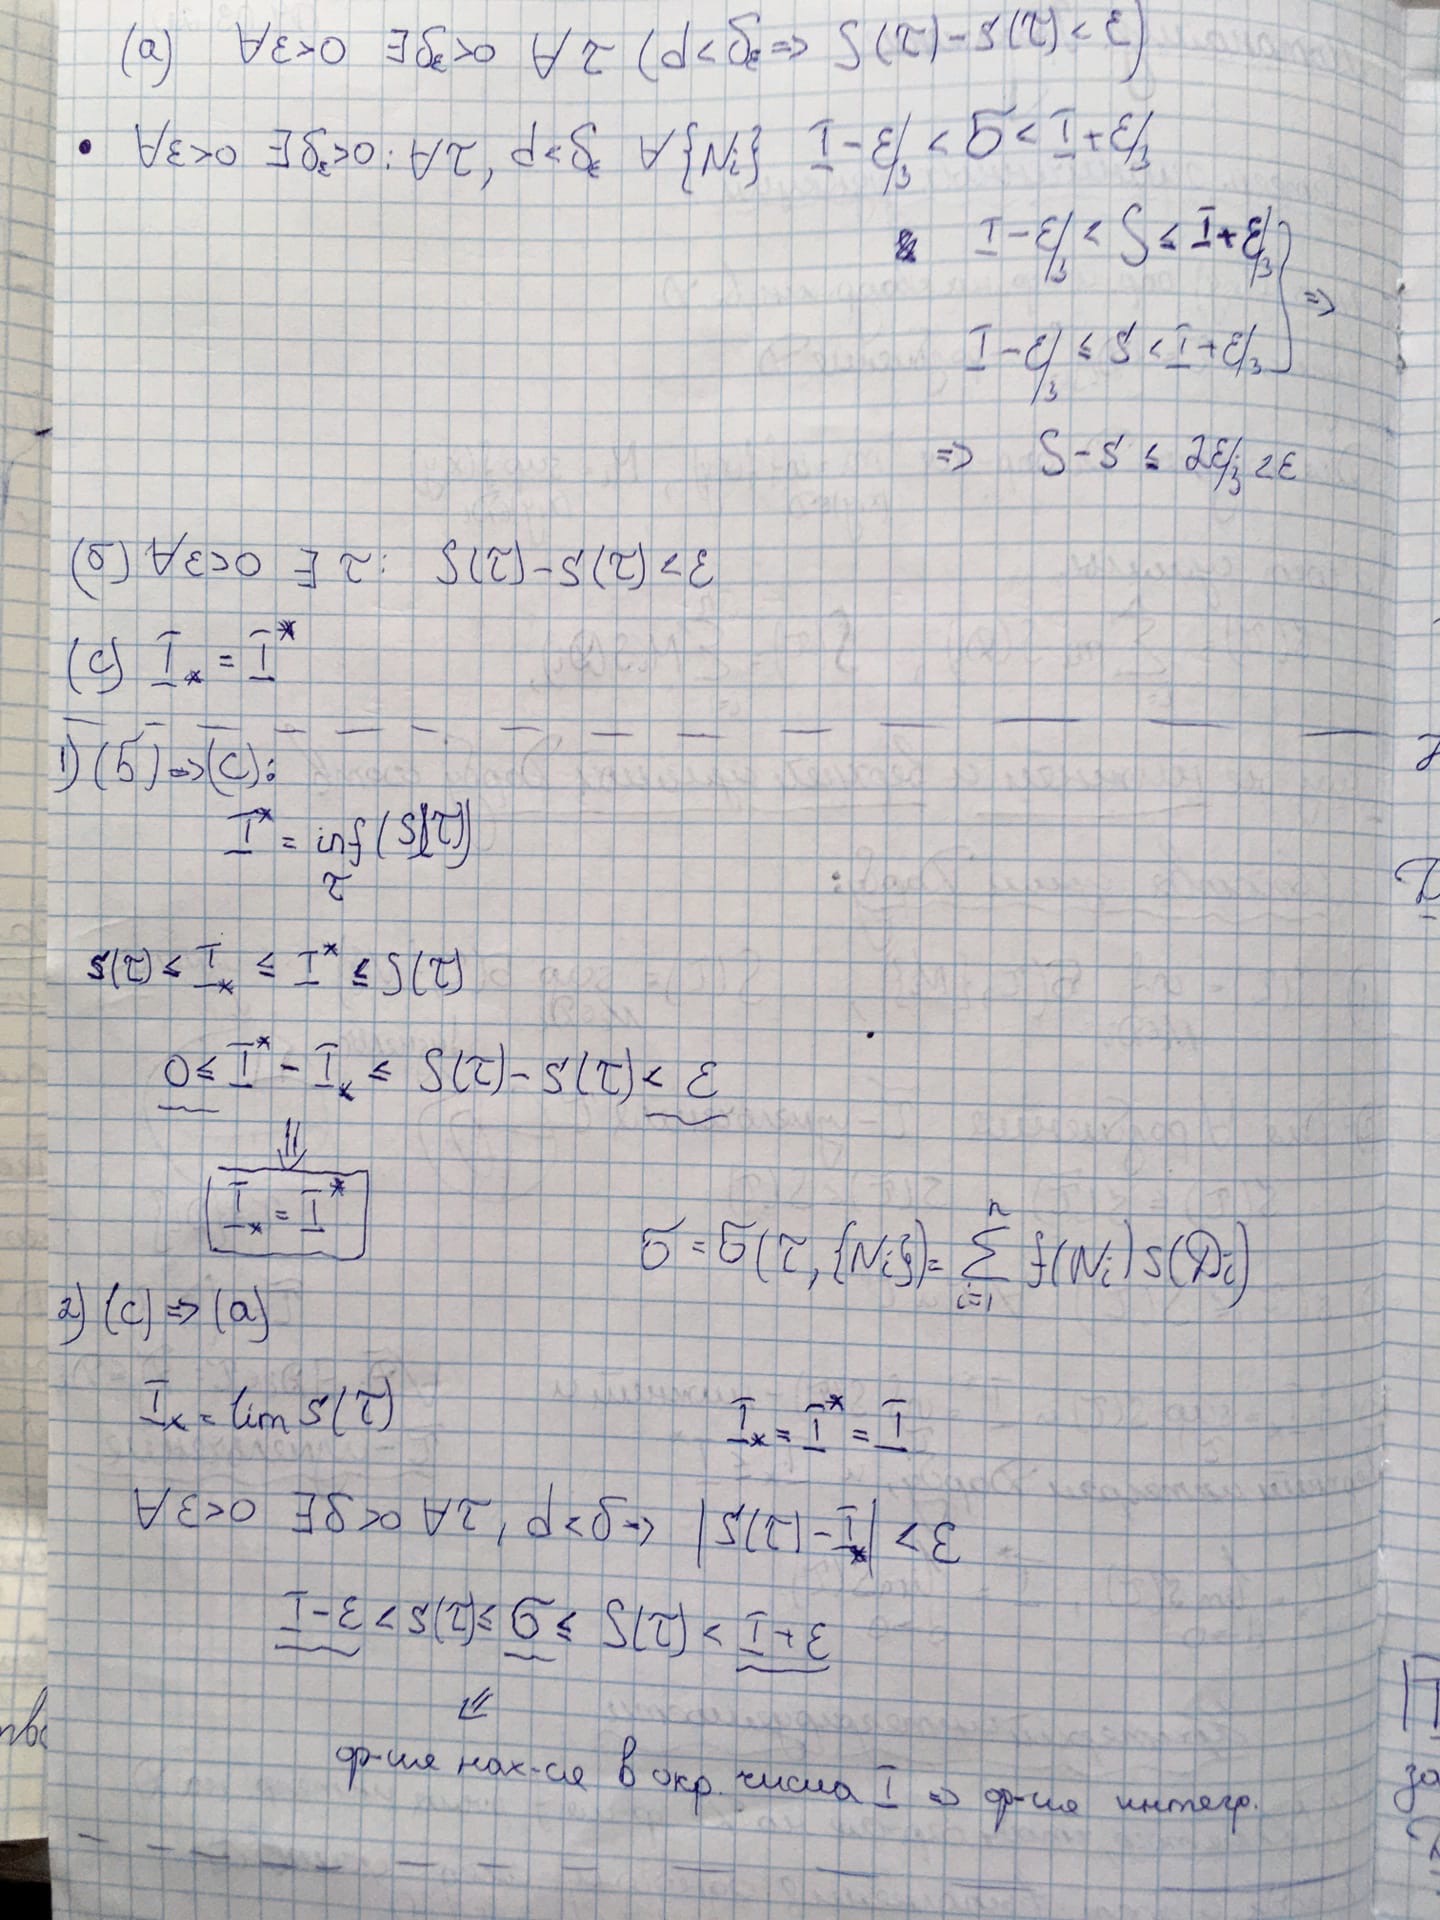 (a) ∀ε>0 ∃δ_ε>0 ∀τ (d<δ_ε => S(τ)-s(τ)<ε)
• ∀ε>0 ∃δ_ε>0: ∀τ, d<δ_ε ∀{N_i} I-ε/3 < σ < I+ε/3
I-ε/3 < S ≤ I+ε/3
=>
I-ε/3 ≤ s < I+ε/3
=> S-s ≤ 2ε/3 < ε
(б) ∀ε>0 ∃τ: S(τ)-s(τ)<ε
(c) I_* = I^*
1) (б) => (c):
I^* = inf (S(τ))
τ
s(τ) ≤ I_* ≤ I^* ≤ S(τ)
0 ≤ I^* - I_* ≤ S(τ)-s(τ) < ε
⇓
I_* = I^*
σ = σ(τ, {N_i}) = Σ_{i=1}^{n} f(N_i) S(D_i)
2) (c) => (a)
I_* = lim s(τ)
I_* = I^* = I
∀ε>0 ∃δ>0 ∀τ, d<δ -> |s(τ)-I_*| < ε
I-ε < s(τ) ≤ σ ≤ S(τ) < I+ε
⇓
ф-ция нах-ся в окр. числа I => ф-ция интегр.